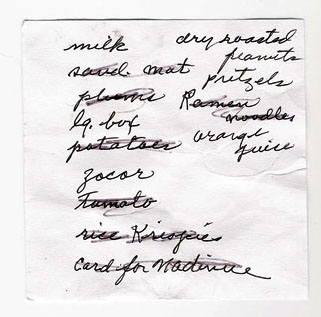 milk
sand. mat
plums
lg. box
potatoes
zocor
Tomato
rice Krispies
card for
dry roasted
peanuts
pretzels
Ramen
noodles
orange
juice